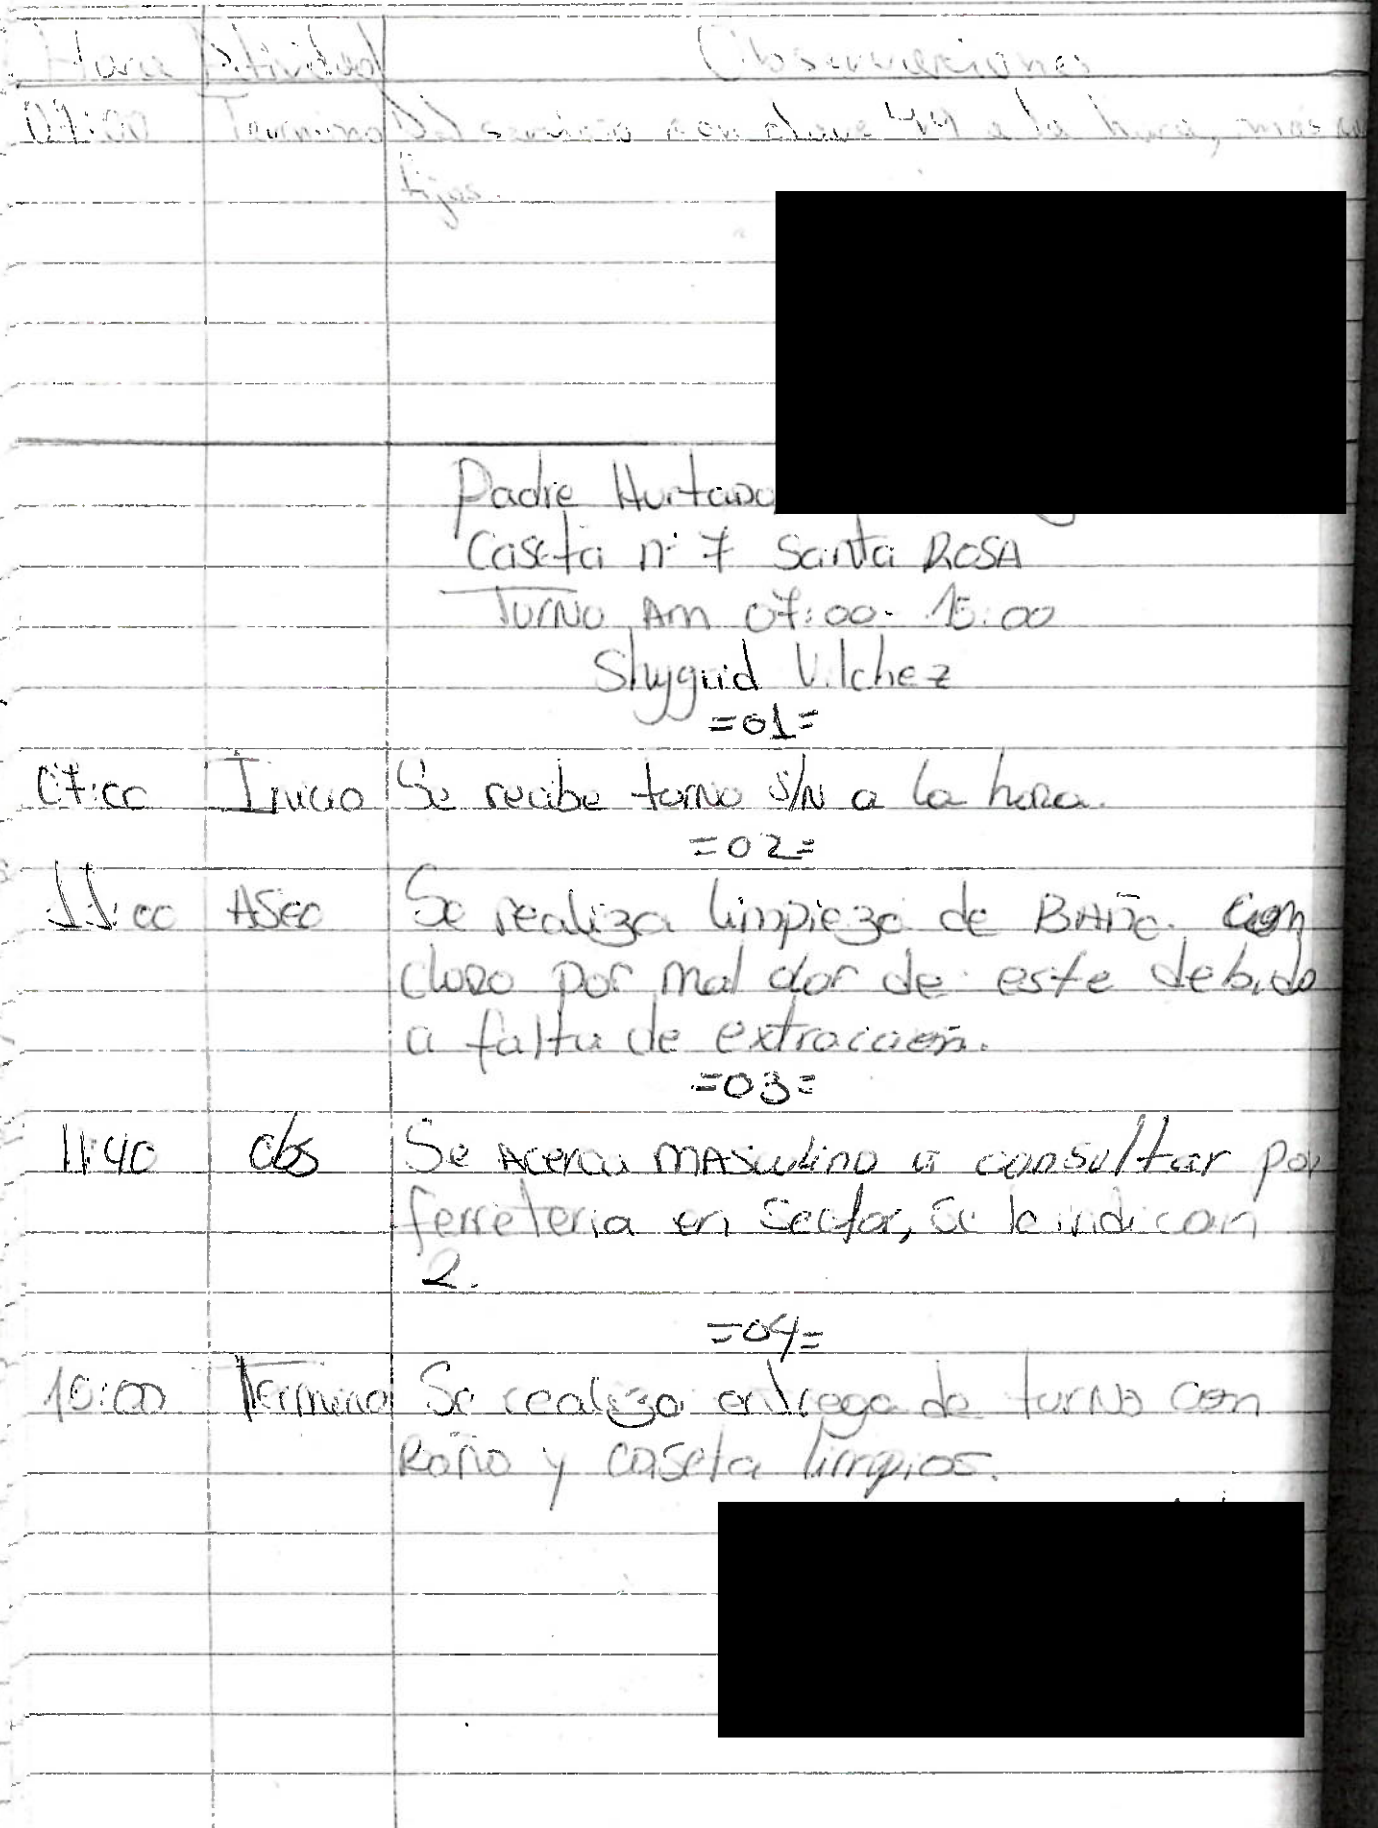 Hora Actividad Observaciones
07:00 Termino Del servicio con clave "44" a la hora, sin
fijos.
Padre Hurtado
Caseta n° 7 Santa ROSA
Turno Am 07:00- 15:00
Shyguid Vilchez
=01=
07:00 Inicio Se recibe turno S/N a la hora.
=02=
11:00 ASEO Se realiza limpieza de BAÑO. con
cloro por mal olor de este debido
a falta de extracción.
=03=
11:40 obs Se Acerca MASculino a consultar por
ferreteria en Sector, se le indican
2.
=04=
15:00 Termino Se realiza entrega de turno con
Baño y caseta limpios.